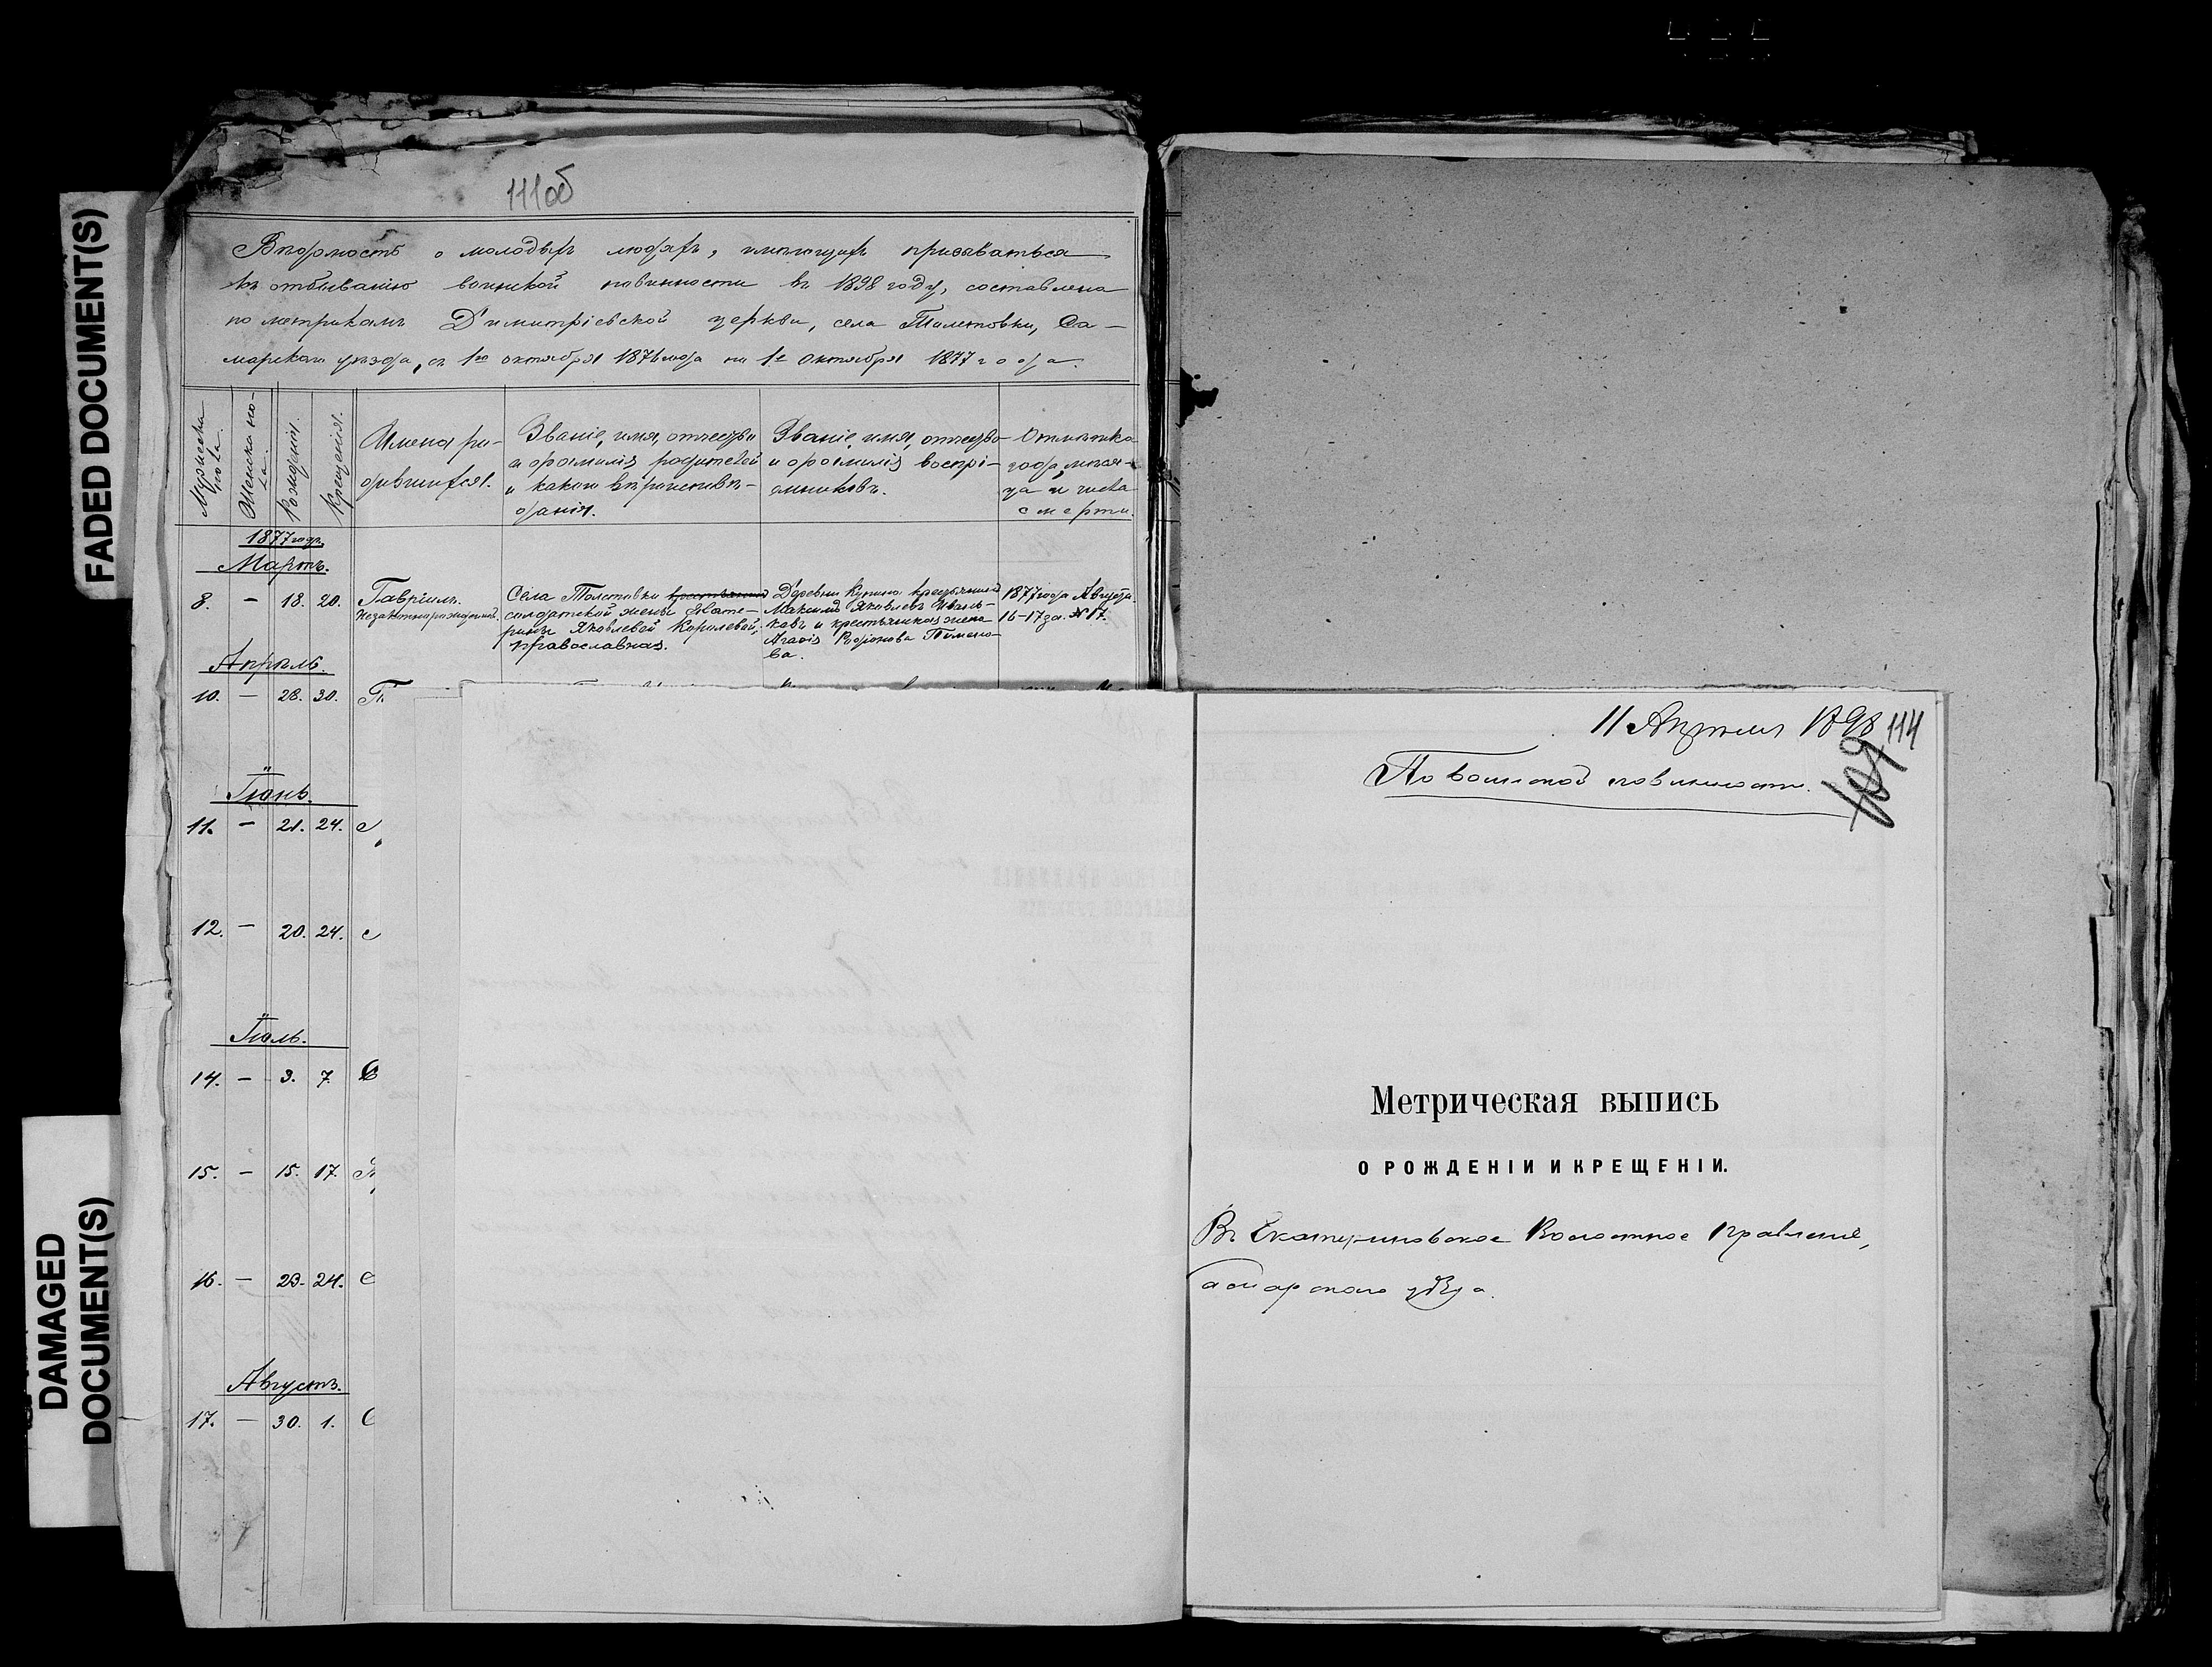 FADED DOCUMENT(S)
DAMAGED
DOCUMENT(S)
111об
Вѣдомость о молодыхъ людяхъ, имѣющихъ призываться
къ отбыванію воинской повинности въ 1898 году, составлена
по метрикамъ Димитріевской церкви, села Толстовки, Са-
марскаго уѣзда, съ 1го октября 1876 года по 1е октября 1877 года.
Мужеска пола.
Женска по-
ла.
Рожденія.
Крещенія.
Имена ро-
дившихся.
Званіе, имя, отчество
и фамилія родителей
и какого вѣроисповѣ-
данія.
Званіе, имя, отчество
и фамилія воспрі-
емниковъ.
Отмѣтка
года, мѣся-
ца и числа
смерти.
1877 годъ.
Мартъ.
8. – 18. 20.
Гавріилъ.
незаконнорожденный.
Села Толстовки крестьянина
солдатской жены Екате-
рины Яковлевой Королевой;
православная.
Деревни крестьянинъ
Максимъ Яковлевъ
ковъ и крестьянская жена
ва.
1877 года Августа
16-17 за № 17.
Апрѣль.
10. – 28. 30.
Іюнь.
11. – 21. 24.
12. – 20. 24.
Іюль.
14. – 3. 7.
15. – 15. 17.
16. – 23. 24.
Августъ.
17. – 30. 1.
11 Апрѣля 1898
114
409
По воинской повинности.
Метрическая выпись
О РОЖДЕНІИ И КРЕЩЕНІИ.
Въ Екатериновское Волостное Правленіе,
Самарскаго уѣзда.